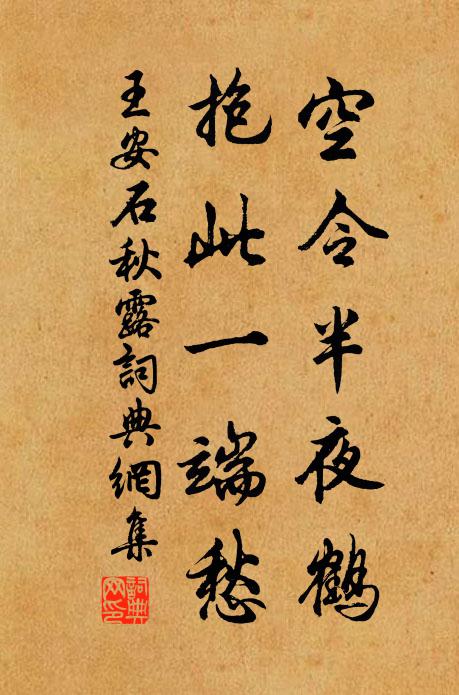 空令半夜鶴
抱此一端愁
王安石秋露詞典網集
詞典网印